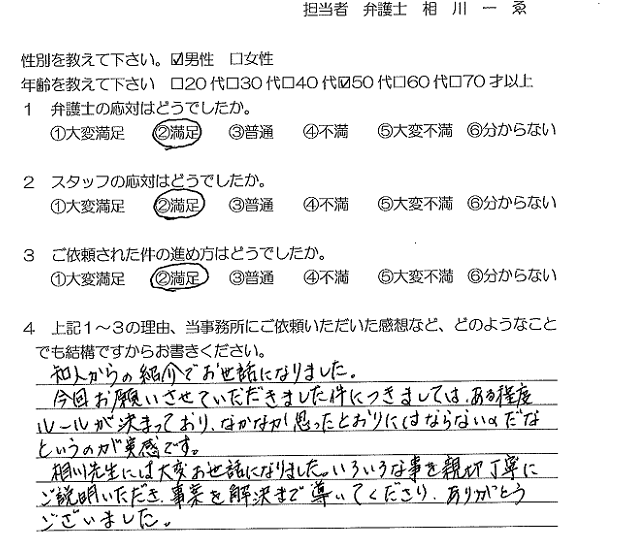 担当者 弁護士 相 川 一 ゑ
性別を教えて下さい。☑男性 □女性
年齢を教えて下さい □20代□30代□40代☑50代□60代□70才以上
1 弁護士の応対はどうでしたか。
①大変満足 ②満足 ③普通 ④不満 ⑤大変不満 ⑥分からない
2 スタッフの応対はどうでしたか。
①大変満足 ②満足 ③普通 ④不満 ⑤大変不満 ⑥分からない
3 ご依頼された件の進め方はどうでしたか。
①大変満足 ②満足 ③普通 ④不満 ⑤大変不満 ⑥分からない
4 上記1～3の理由、当事務所にご依頼いただいた感想など、どのようなこと
でも結構ですからお書きください。
知人からの紹介でお世話になりました。
今回お願いさせていただきました件につきましては、ある程度
ルールが決まっており、なかなか思ったとおりにはならないのだな
というのが実感です。
相川先生には大変お世話になりました。いろいろな事を親切丁寧に
ご説明いただき、事案を解決まで導いてくださり、ありがとう
ございました。